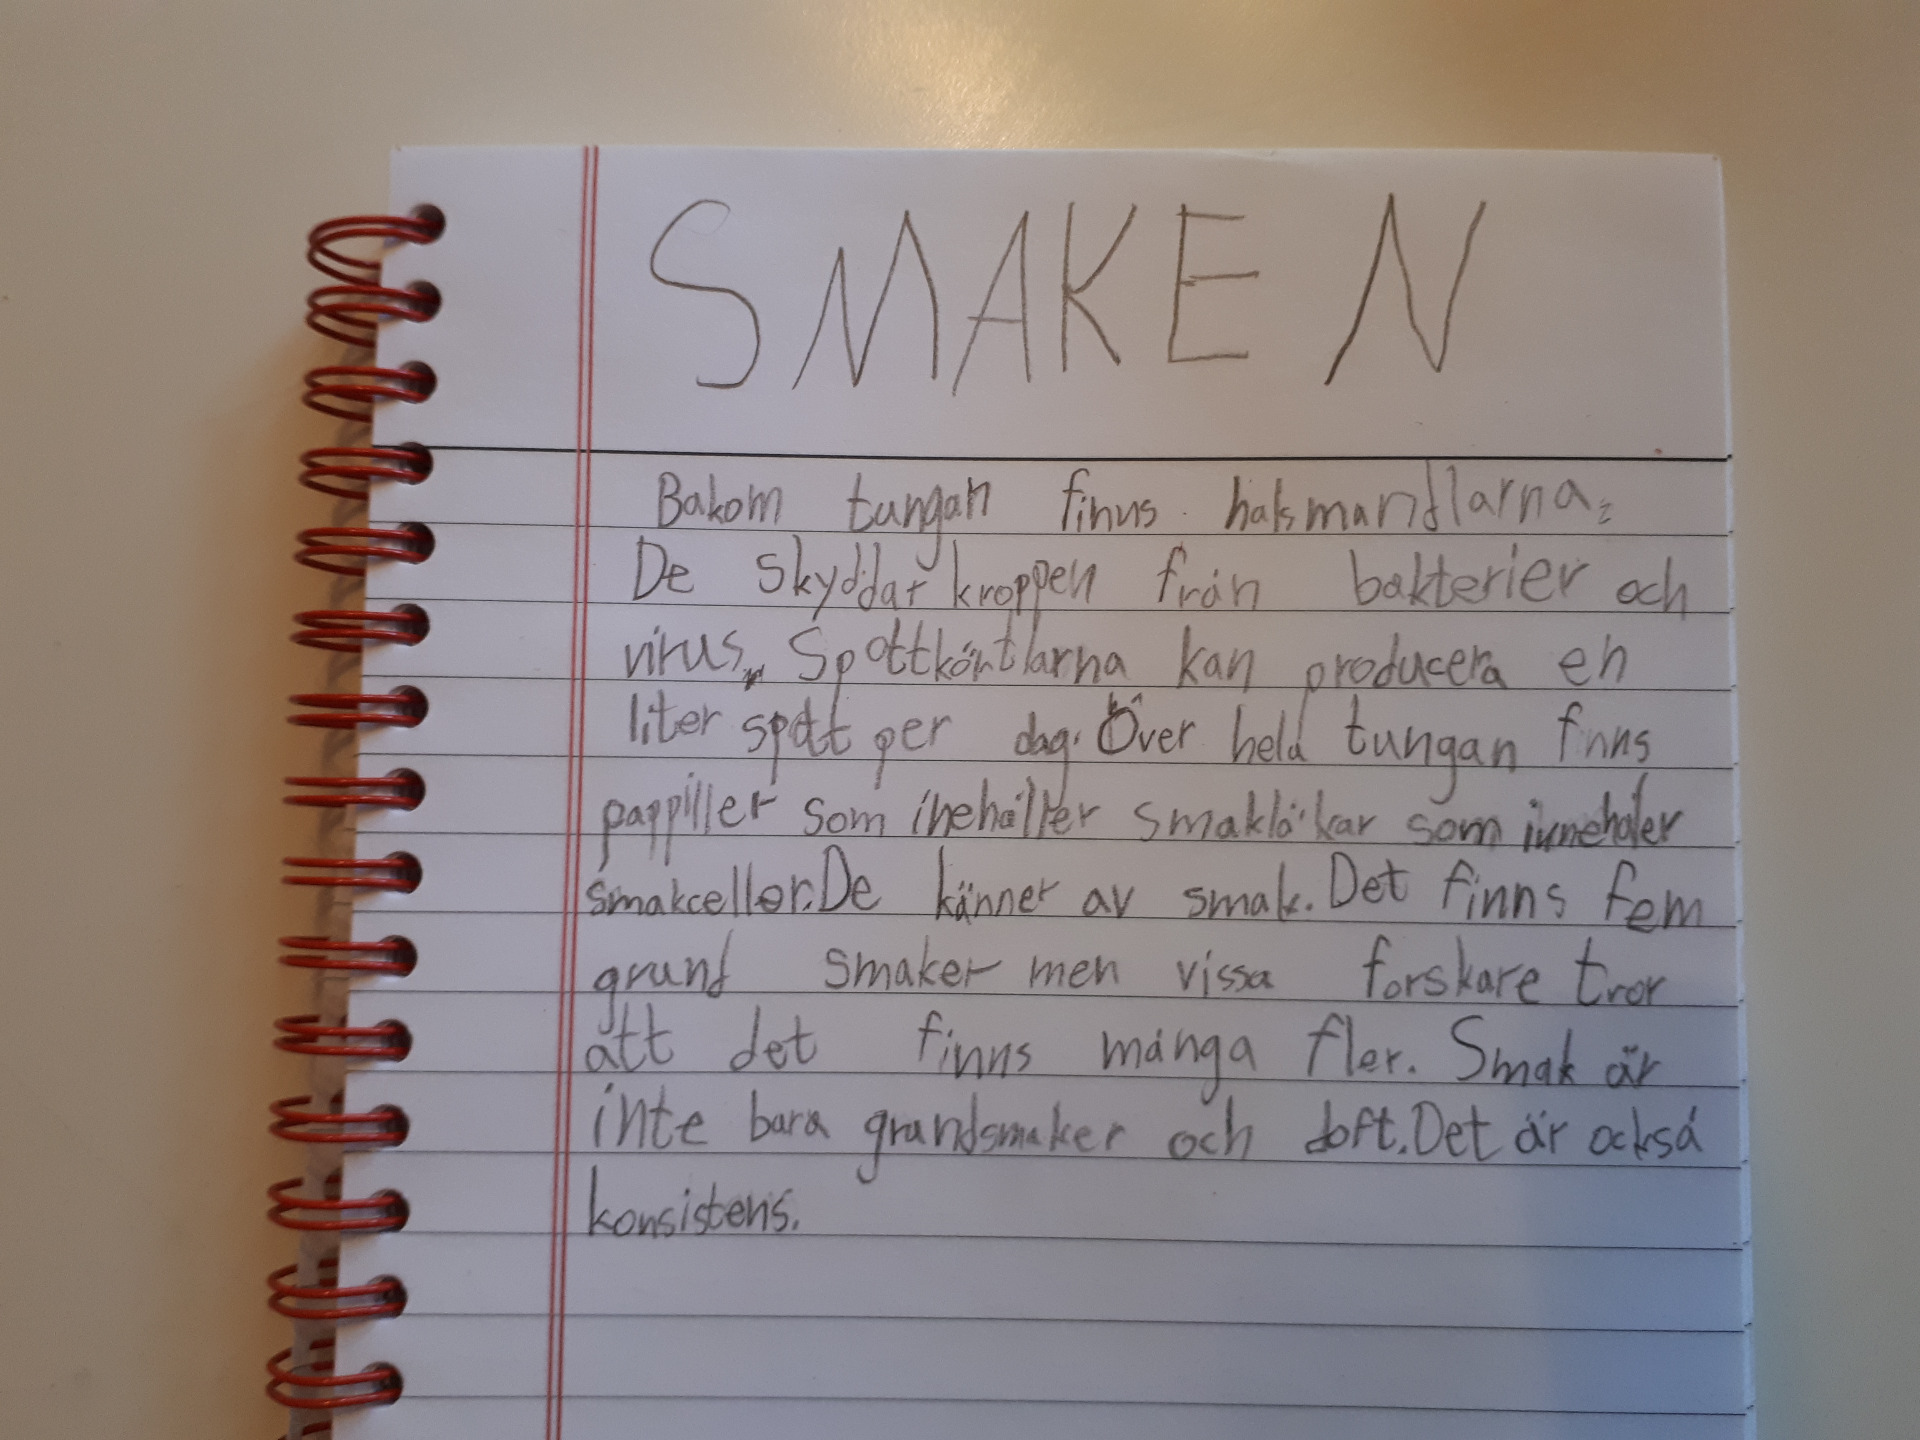 SMAKEN
Bakom tungan finns halsmandlarna.
De skyddar kroppen från bakterier och
virus. Spottkörtlarna kan producera en
liter spott per dag. Över hela tungan finns
pappiller som inehåller smaklökar som innehåler
smakceller. De känner av smak. Det finns fem
grund smaker men vissa forskare tror
att det finns många fler. Smak är
inte bara grundsmaker och doft. Det är också
konsistens.